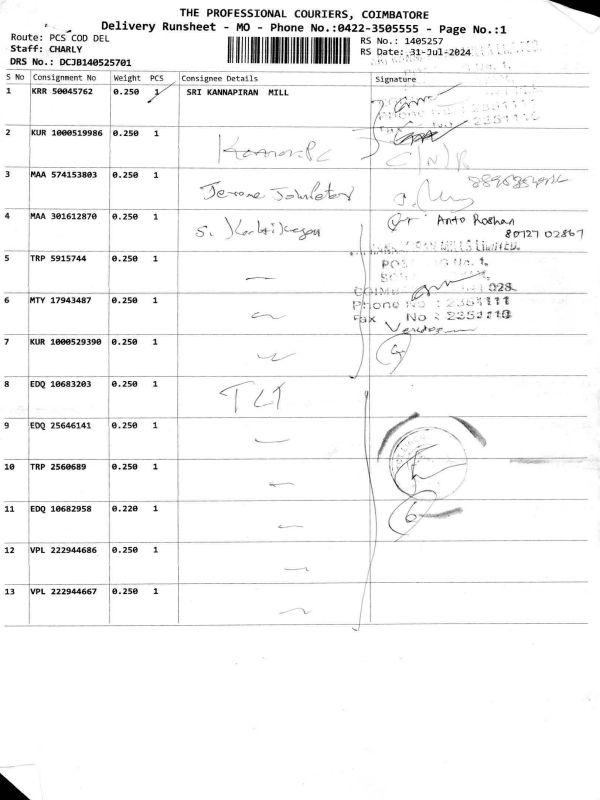 THE PROFESSIONAL COURIERS, COIMBATORE
Delivery Runsheet - MO - Phone No.:0422-3505555 - Page No.:1
Route: PCS COD DEL
Staff: CHARLY
DRS No.: DCJB140525701
RS No.: 1405257
RS Date: 31-Jul-2024
S No Consignment No Weight PCS Consignee Details Signature
1 KRR 50045762 0.250 1 SRI KANNAPIRAN MILL
Phone No : 2351111
Fax No : 2351110
2 KUR 1000519986 0.250 1
3 MAA 574153803 0.250 1 Jerome
4 MAA 301612870 0.250 1 S. Karthikeyan Anto Roshan
80727 02867
MILLS LIMITED.
5 TRP 5915744 0.250 1
6 MTY 17943487 0.250 1
Phone No : 2351111
Fax No : 2351110
7 KUR 1000529390 0.250 1
8 EDQ 10683203 0.250 1 TCT
9 EDQ 25646141 0.250 1
10 TRP 2560689 0.250 1
11 EDQ 10682958 0.220 1
12 VPL 222944686 0.250 1
13 VPL 222944667 0.250 1